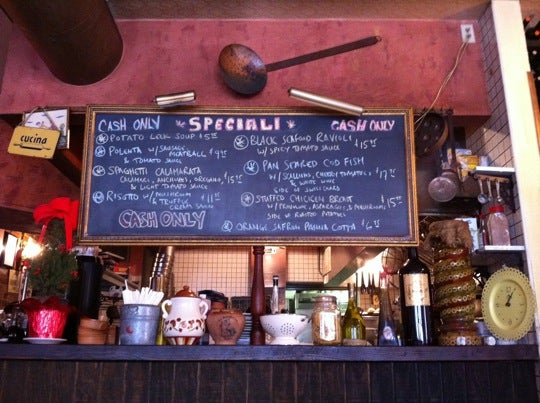 cucina
CASH ONLY * SPECIALI * CASH ONLY
POTATO LEEK SOUP $5.00
POLENTA W/ SAUSAGE
MEATBALL $9.95
& TOMATO SAUCE
SPAGHETTI CALAMARATA
CALAMARI, ANCHOVIES, OREGANO, $15
& LIGHT TOMATO SAUCE
RISOTTO W/ MUSHROOM $11.00
& TRUFFLE
CREAM SAUCE
CASH ONLY
BLACK SEAFOOD RAVIOLI
W/ SPICY TOMATO SAUCE $15.95
PAN SEARED COD FISH
W/ SCALLIONS, CHERRY TOMATOES $17.95
& WHITE WINE
SIDE OF SWISS CHARD
STUFFED CHICKEN BREAST
$15.95
SIDE OF ROASTED POTATOES
ORANGE SAFFRON PANNA COTTA $6.00